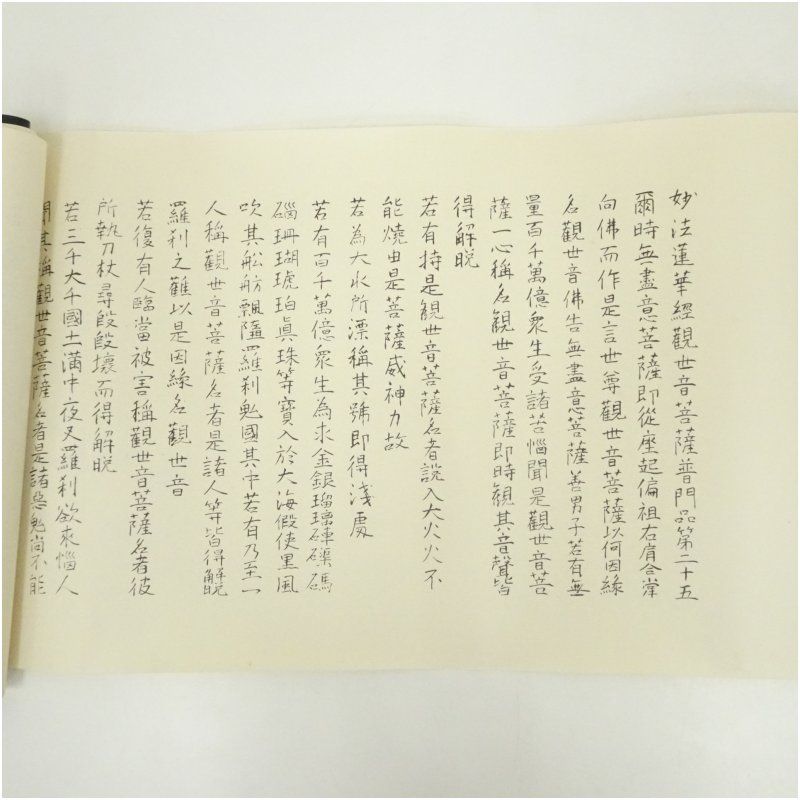 妙法蓮華經觀世音菩薩普門品第二十五
爾時無盡意菩薩即從座起偏袒右肩合掌
向佛而作是言世尊觀世音菩薩以何因緣
名觀世音佛告無盡意菩薩善男子若有無
量百千萬億衆生受諸苦惱聞是觀世音菩
薩一心稱名觀世音菩薩即時觀其音聲皆
得解脱
若有持是觀世音菩薩名者設入大火火不
能燒由是菩薩威神力故
若為大水所漂稱其號即得淺處
若有百千萬億衆生為求金銀瑠璃硨磲碼
碯珊瑚琥珀眞珠等寶入於大海假使黒風
吹其舩舫飄墮羅刹鬼國其中若有乃至一
人稱觀世音菩薩名者是諸人等皆得解脱
羅刹之難以是因緣名觀世音
若復有人臨當被害稱觀世音菩薩名者彼
所執刀杖尋段段壞而得解脱
若三千大千國土滿中夜叉羅刹欲来惱人
聞其稱觀世音菩薩名者是諸惡鬼尚不能